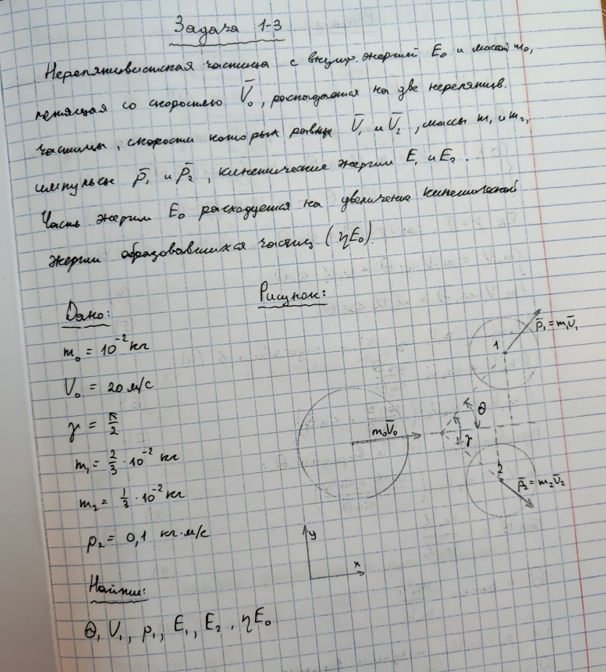 Задача 1-3
Нерелятивистская частица с внутр. энергией E₀ и массой m₀,
летящая со скоростью V̄₀, распадается на две нерелятив.
частицы, скорости которых равны V̄₁ и V̄₂, массы m₁ и m₂,
импульсы p̄₁ и p̄₂, кинетические энергии E₁ и E₂.
Часть энергии E₀ расходуется на увеличение кинетической
энергии образовавшихся частиц (ηE₀).
Дано:
Рисунок:
m₀ = 10⁻² кг
V₀ = 20 м/с
γ = π/2
m₁ = 2/3 · 10⁻² кг
m₂ = 1/3 · 10⁻² кг
p₂ = 0,1 кг·м/с
Найти:
θ, V₁, p₁, E₁, E₂, ηE₀
1
p̄₁ = m₁V̄₁
θ
m₀V̄₀
γ
2
p̄₂ = m₂V̄₂
y
x